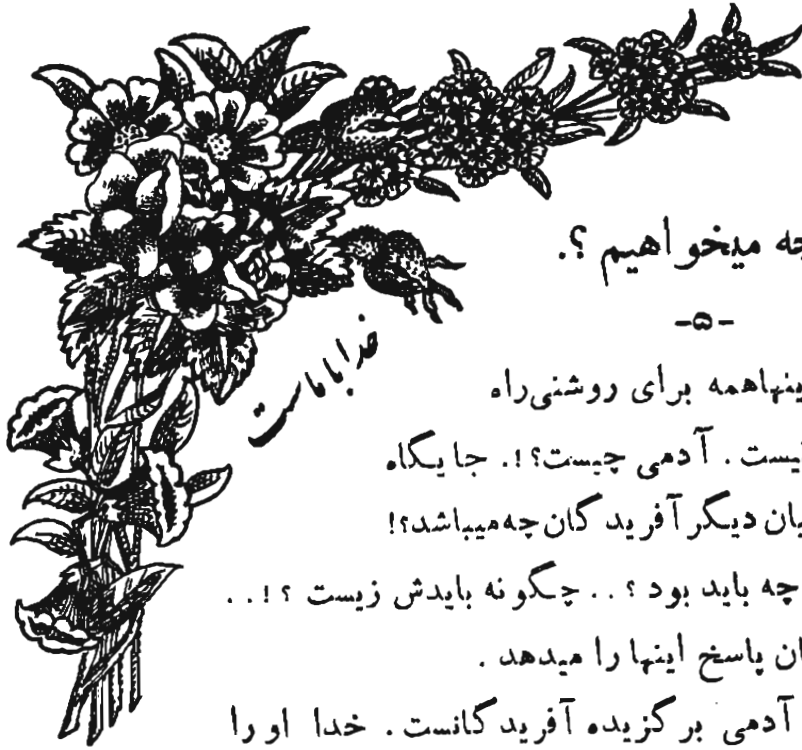 چه میخواهیم ؟.
-۵-
خدا با ماست
ینهاهمه برای روشنی‌راه
یست . آدمی چیست؟!. جایگاه
یان دیگر آفریدگان چه‌میباشد؟!
چه باید بود ؟.. چگونه بایدش زیست ؟!..
ان پاسخ اینها را میدهد .
آدمی برگزیده آفریدگانست . خدا او را